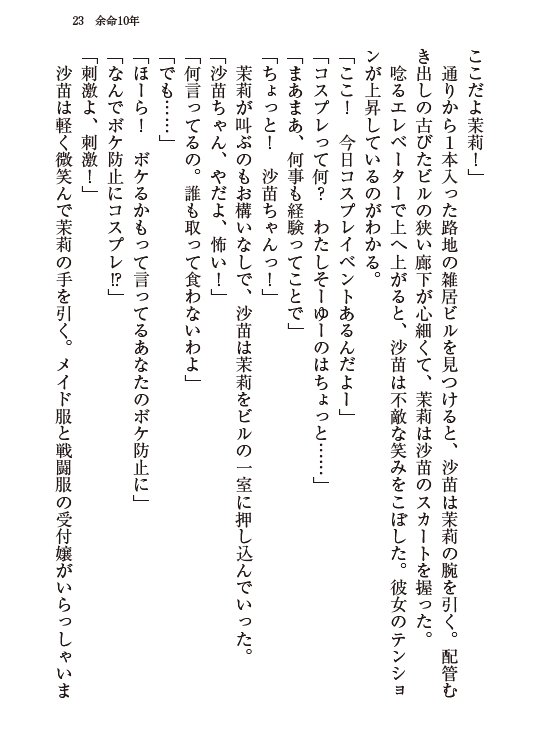 23 余命10年
ここだよ茉莉！」
　通りから１本入った路地の雑居ビルを見つけると、沙苗は茉莉の腕を引く。配管む
き出しの古びたビルの狭い廊下が心細くて、茉莉は沙苗のスカートを握った。
　唸るエレベーターで上へ上がると、沙苗は不敵な笑みをこぼした。彼女のテンショ
ンが上昇しているのがわかる。
「ここ！　今日コスプレイベントあるんだよー」
「コスプレって何？　わたしそーゆーのはちょっと……」
「まあまあ、何事も経験ってことで」
「ちょっと！　沙苗ちゃんっ！」
　茉莉が叫ぶのもお構いなしで、沙苗は茉莉をビルの一室に押し込んでいった。
「沙苗ちゃん、やだよ、怖い！」
「何言ってるの。誰も取って食わないわよ」
「でも……」
「ほーら！　ボケるかもって言ってるあなたのボケ防止に」
「なんでボケ防止にコスプレ!?」
「刺激よ、刺激！」
　沙苗は軽く微笑んで茉莉の手を引く。メイド服と戦闘服の受付嬢がいらっしゃいま